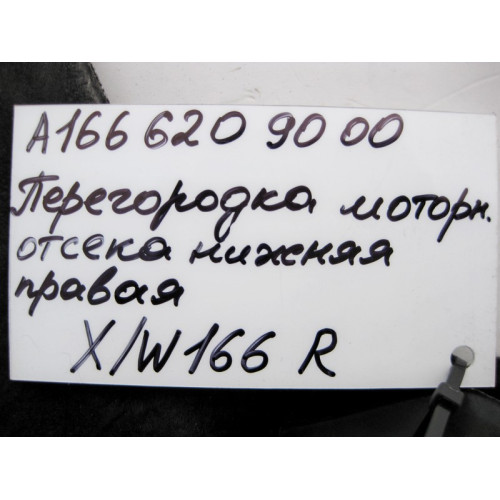 A166 620 90 00
Перегородка моторн.
отсека нижняя
правая
X/W166 R